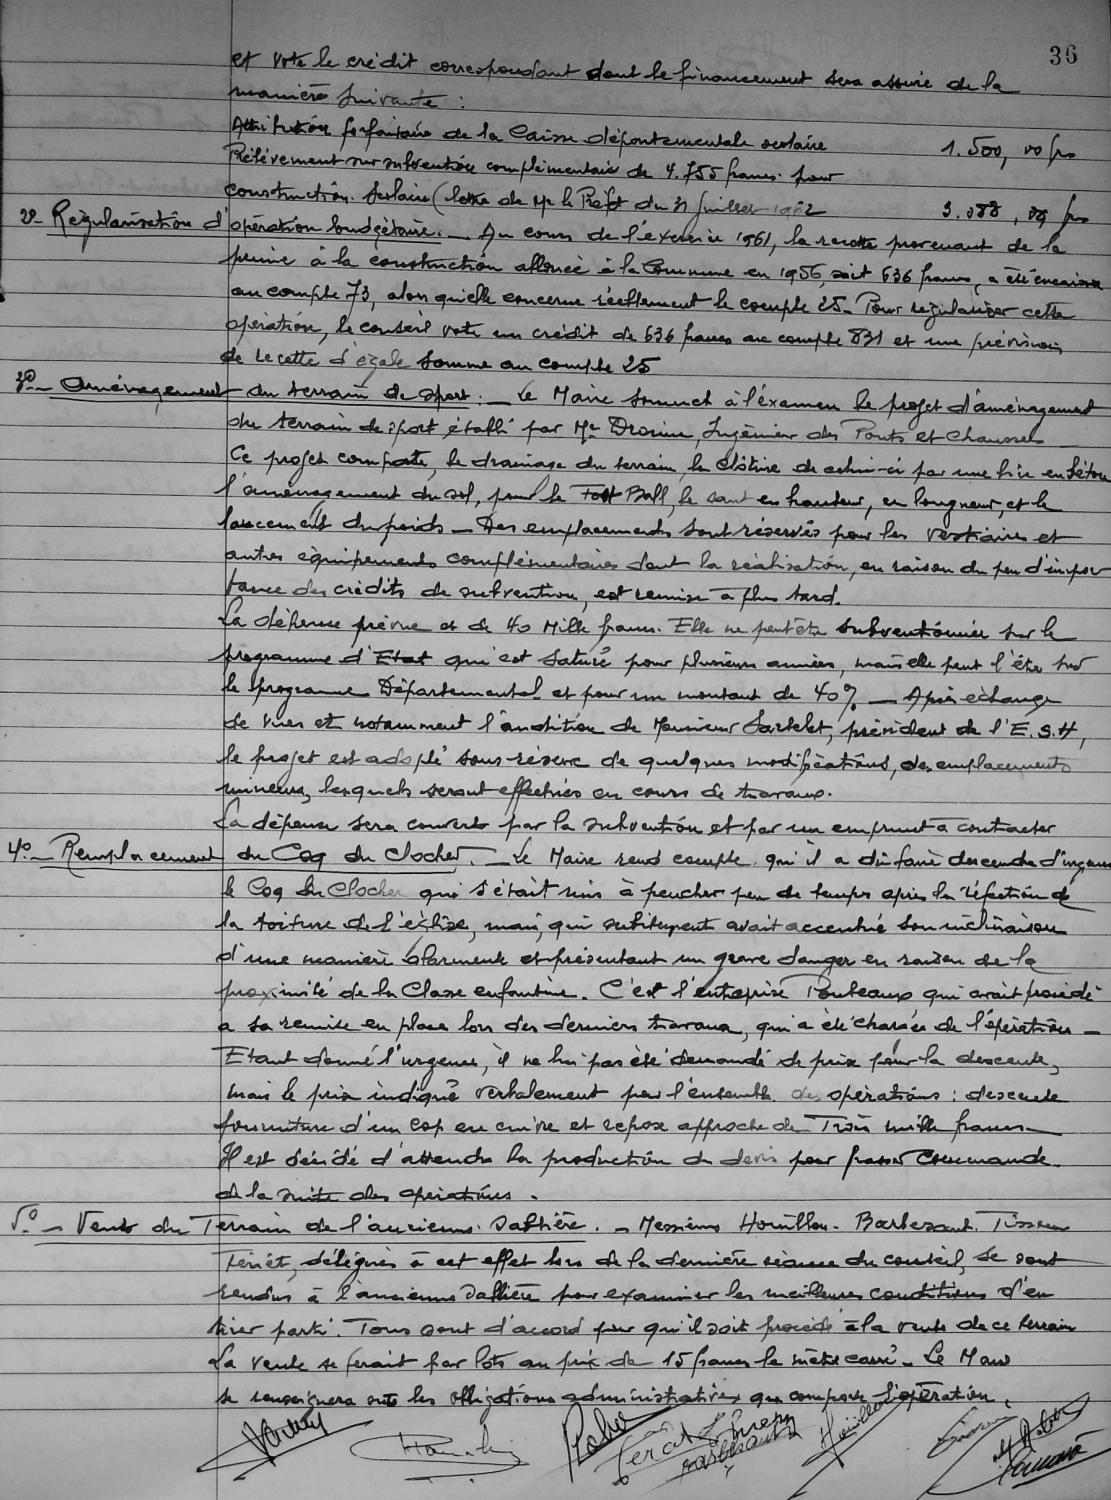 36
et vote le crédit correspondant dont le financement sera assuré de la
manière suivante :
Attribution forfaitaire de la Caisse départementale scolaire 1.500,00 frs
Prélèvement sur subvention complémentaire de 4.755 francs pour
construction scolaire (lettre de Mr le Préfet du 31 Juillet 1962 3.088,09 frs
2º_ Régularisation d'opération budgétaire. _ Au cours de l'exercice 1961, la recette provenant de la
prime à la construction allouée à la Commune en 1956, soit 636 francs, a été encaissée
au compte 73, alors qu'elle concerne réellement le compte 25_ Pour régulariser cette
opération, le conseil vote un crédit de 636 francs au compte 831 et une prévision
de recette d'égale somme au compte 25
3º_ Aménagement du terrain de sport : _ Le Maire soumet à l'examen le projet d'aménagement
du terrain de sport établi par Mr Drouin, Ingénieur des Ponts et Chaussées _
Ce projet comporte, le drainage du terrain, la clôture de celui-ci par une lice en béton
l'aménagement du sol, pour le Foot Ball, le saut en hauteur, en longueur, et le
lancement du poids _ Des emplacements sont réservés pour les vestiaires et
autres équipements complémentaires dont la réalisation, en raison du peu d'impor
tance des crédits de subvention, est remise à plus tard.
La dépense prévue est de 40 Mille francs. Elle ne peut être subventionnée par le
programme d'Etat qui est saturé pour plusieurs années, mais elle peut l'être sur
le programme Départemental et pour un montant de 40% _ Après échange
de vues et notamment l'audition de Monsieur Sartelet, président de l'E.S.H,
le projet est adopté sous réserve de quelques modifications, des emplacements
mineurs, lesquels seront effectués en cours de travaux.
La dépense sera couverte par la subvention et par un emprunt à contracter
4º_ Remplacement du Coq du Clocher. _ Le Maire rend compte qu'il a dû faire descendre d'urgence
le Coq du Clocher qui s'était mis à pencher peu de temps après la réfection de
la toiture de l'église, mais, qui subitement avait accentué son inclinaison
d'une manière alarmante et présentant un grave danger en raison de la
proximité de la Classe enfantine. C'est l'entreprise Ponteaux qui avait procédé
à sa remise en place lors des derniers travaux, qui a été chargée de l'opération _
Etant donné l'urgence, il ne lui pas été demandé de prix pour la descente,
mais le prix indiqué verbalement pour l'ensemble des opérations : descente
fourniture d'un coq en cuivre et repose approche de Trois mille francs _
Il est décidé d'attendre la production du devis pour passer commande
de la suite des opérations.
5º_ Vente du Terrain de l'ancienne Sablière. _ Messieurs Houillon. Barbesant. Tisseron
Fériet, délégués à cet effet lors de la dernière séance du conseil, se sont
rendus à l'ancienne Sablière pour examiner les meilleures conditions d'en
tirer parti. Tous sont d'accord pour qu'il soit procédé à la vente de ce terrain
La vente se ferait par lots au prix de 15 francs le mètre carré _ Le Maire
se renseignera sur les obligations administratives que comporte l'opération.